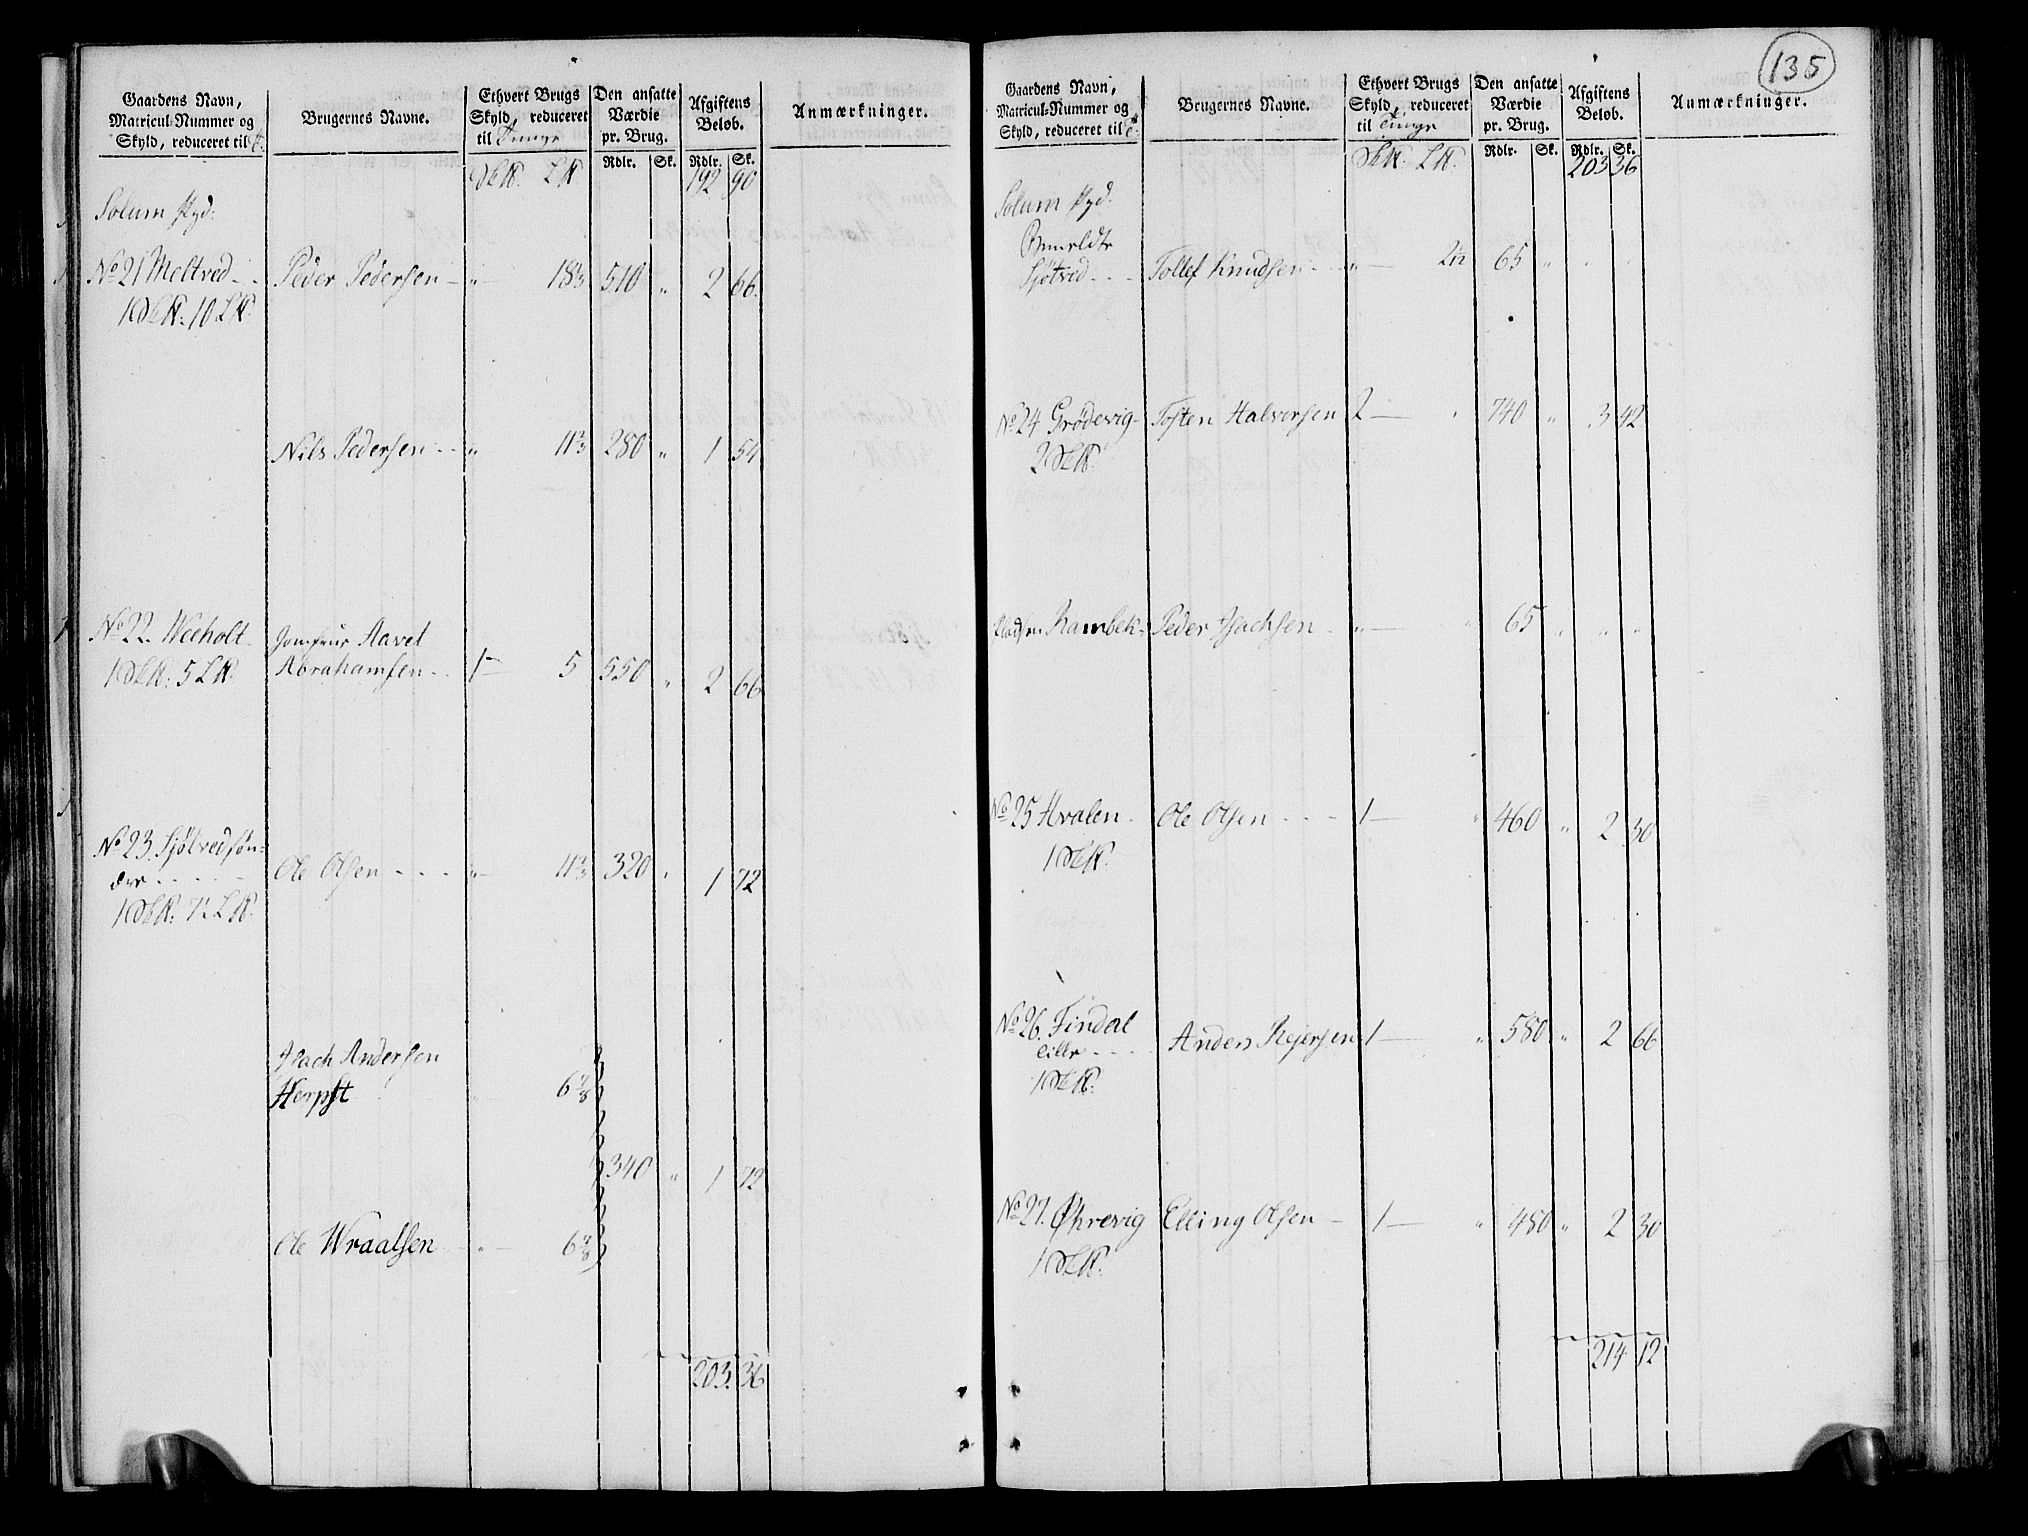 135
Gaardens Navn, Matricul-Nummer og Skyld, reduceret til
Brugernes Navne.
Ethvert Brugs Skyld, reduceret til Tunge
Den ansatte Værdie pr. Brug.
Afgiftens Beløb.
Anmærkninger.
Rdlr. Sk. Rdlr. Sk.
192 90
Solum
No 21 Meltved - - Peder Pedersen - " 18⅓ 510 " 2 66.
10
Nils Pedersen - - " 11⅔ 280 " 1 54
No 22. Weeholt Jomfrue Aavet
Abrahamsen - - 1 - 5 550 " 2 66
5
No 23. Sjøtved søn=
dre - - - - - Ole Olsen - - - " 11⅔ 320 " 1 72
Isach Andersen
Herpst " 6⅞
340 " 1 72
Ole Wraalsen " 6⅞
203. 36
Gaardens Navn, Matricul-Nummer og Skyld, reduceret til
Brugernes Navne.
Ethvert Brugs Skyld, reduceret til Tunge
Den ansatte Værdie pr. Brug.
Afgiftens Beløb.
Anmærkninger.
Rdlr. Sk. Rdlr. Sk.
203 36
Solum
Sjøtved - - - Tollef Knudsen - - " 2½ 65 " " "
No 24 Grødevig - Tosten Halvorsen 2 - " 740 " 3 42
2
Pladsen Rambek - Peder Isachsen - " - " 65 " " "
No 25 Hvalen - Ole Olsen - - - 1 - " 460 " 2 30
1
No 26. Findal
lille - - - Anders Rejersen 1 - " 580 " 2 66
1
No 27. Øhrevig Elling Olsen - 1 - " 480 " 2 30
1
214 12